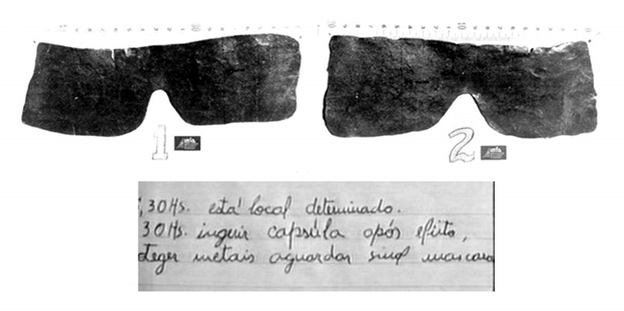 10
10
1
2
,30Hs. está local determinado.
30Hs. inguirir capsúla após efeito,
oteger metais aguardar sinal mascara